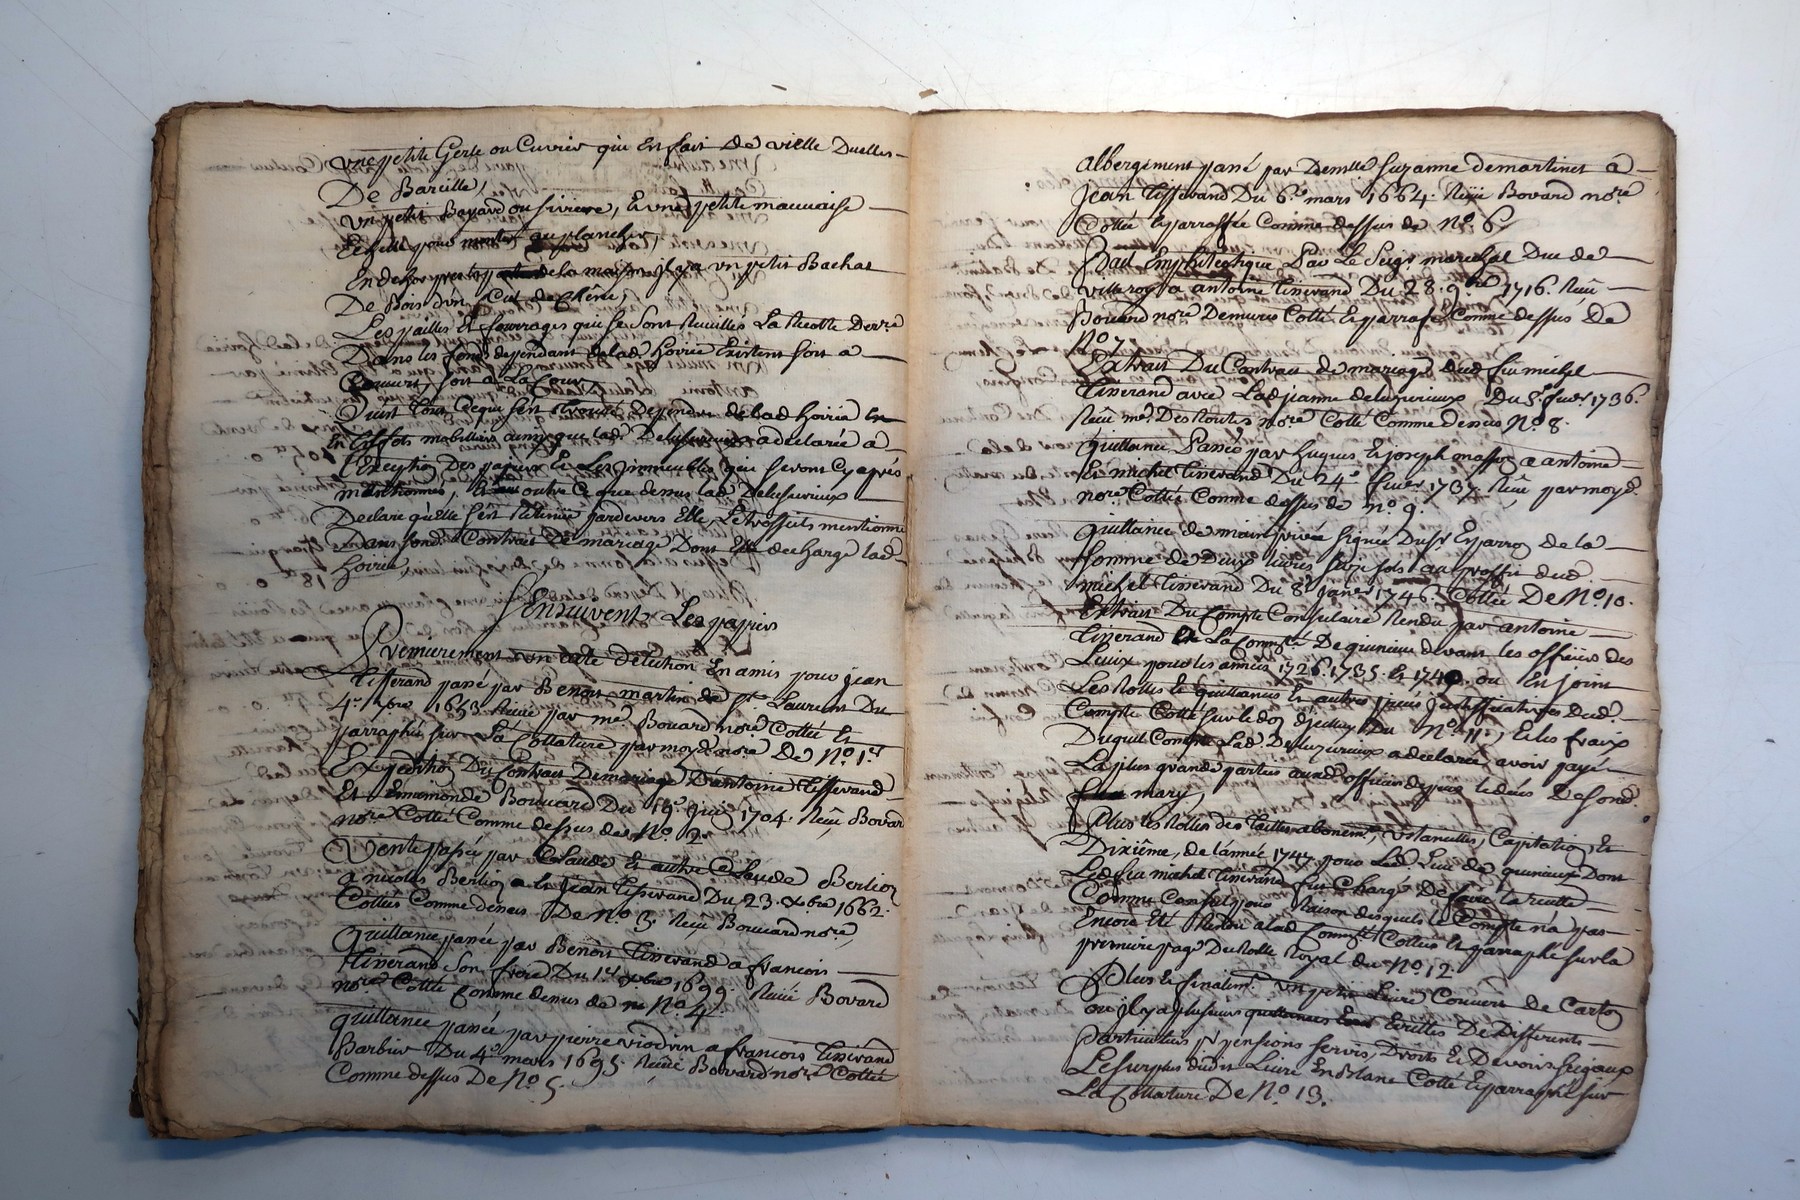 une petite Gerle ou Cuvier qui Est fait de vielle Duelles
De Bareille,
un petit Bayard ou siviere, Et une petite mauvaise
Echelle pour monter au plancher,
En dehors de la maison il y a un petit Bachat
De Bois d'un Cul de Chêne,
Les pailles Et fourrages qui se sont Recuillis La Recolte Derre
Dans les fonds dependants de lad hoirie Existent soit a
Couvert, soit a La Cour
Qui est Tout Ce qui s'est trouvé Dependre de lad hoirie En
Effets mobilliers ainsy que lad. Delusurieux a declarée a
L'exeption Des papiers Et Les jmmeubles qui seront Cy après
mentionnés, outre Ce que dessus lad Delusurieux
Declare qu'elle s'est Retenüe pardevers Elle, Le trossels mentionné
Dans sond. Contrat De mariage Dont decharge lad
hoirie,
S'Ensuivent Les papiers
Premierement un acte d'Election En amis pour jean
Tisserand passé par Benoit martin de St Laurent Du
4e 1653 Reçu par me Bouard nore Cotté Et
parraphé sur La Cottature par moyd. nore De No. 1er
Expedition Du Contrat De mariage D'antoine Tisserand
Et Ennemonde Bouvard Du 19e juin 1704. Reçu Bovard
nore Cotté Comme dessus de No. 2
Vente passée par Claude Et autre Claude Berlion
a nicolas Berlion a Et jean Tisserand Du 23. xbre 1662.
Cottés Comme dessus De No 3. Reçu Bouvard nore,
Quittance passée par Benoit Tisserand a francois
Tisserand Son frere Du 1er xbre 1699. Reçue Bovard
nore Cotté Comme dessus de No. 4.
Quittance passée par pierre viodrin a francois Tisserand
Barbier Du 4e mars 1695. Reçue Bovard nore Cottée
Comme dessus De No 5.
albergement passé par Demlle Suzanne demartinet a
jean Tisserand Du 6e mars 1664. Reçu Bovard nore
Cotté Et parraffée Comme dessus de No. 6.
Bail Emphiteotique Par Le Seigr. marechal Duc de
villeroy a antoine Tisserand Du 28. 9bre 1716. Reçu
Bouard nore Demures Cotté Et parrafé Comme dessus De
No 7.
Extrait Du Contrat de mariage dud feu michel
Tisserand avec Lad jeanne delusurieux Du 8e fever 1736.
Reçu me Desroutes nore Cotté Comme dessus No. 8.
Quittance Passée par hugues Et joseph a antoine
Et michel Tisserand Du 24e fever 1737. Reçu par moyd.
nore Cottée Comme dessus de no. 9.
Quittance de main privée signée Dusr Esparron de la
Somme de Deux livres sols au proffit dud.
michel Tisserand Du 8e janer 1746. Cottée De No. 10.
Extrait Du Compte Consulaire Rendu par antoine
Tisserand La Commté De quinieu devant les offiers des
Leuix pour les années 1726. 1735. Et 1740. ou Est joint
Les Rolles Et quittances Et autres pieces justifficatives Dud.
Compte Cotté sur le dos d'jcelluy Du No. 11., Et les fraix
Duquel Compte Lad. Deluzurieux a declarée avoir payé
La plus grande parties auxd. officiers depuis le deces De sond.
mary,
Plus les Rolles des Tailles abonemt, Ustancilles, Capitation, Et
Dixième, de l'année 1747 pour Led. Lieu de quinieux Dont
Led feu michel Tisserand fut Chargé De faire la recette
Comme Consul pour Raison desquels le Compte n'a pas
Encore Eté Rendu a lad Commté Cottés Et parraphé sur la
premiere page Du Rolle Royal du No. 12.
Plus Et finalemt un petit Livre Couvert de Carton
ou il y a plusieurs quittances Ecrittes De Differents
Particuliers pr pensions servis, Droits Et Devoirs seigaux
Le surplus dudit Livre En blanc Cotté Et parraphé sur
La Cottature De No. 13.